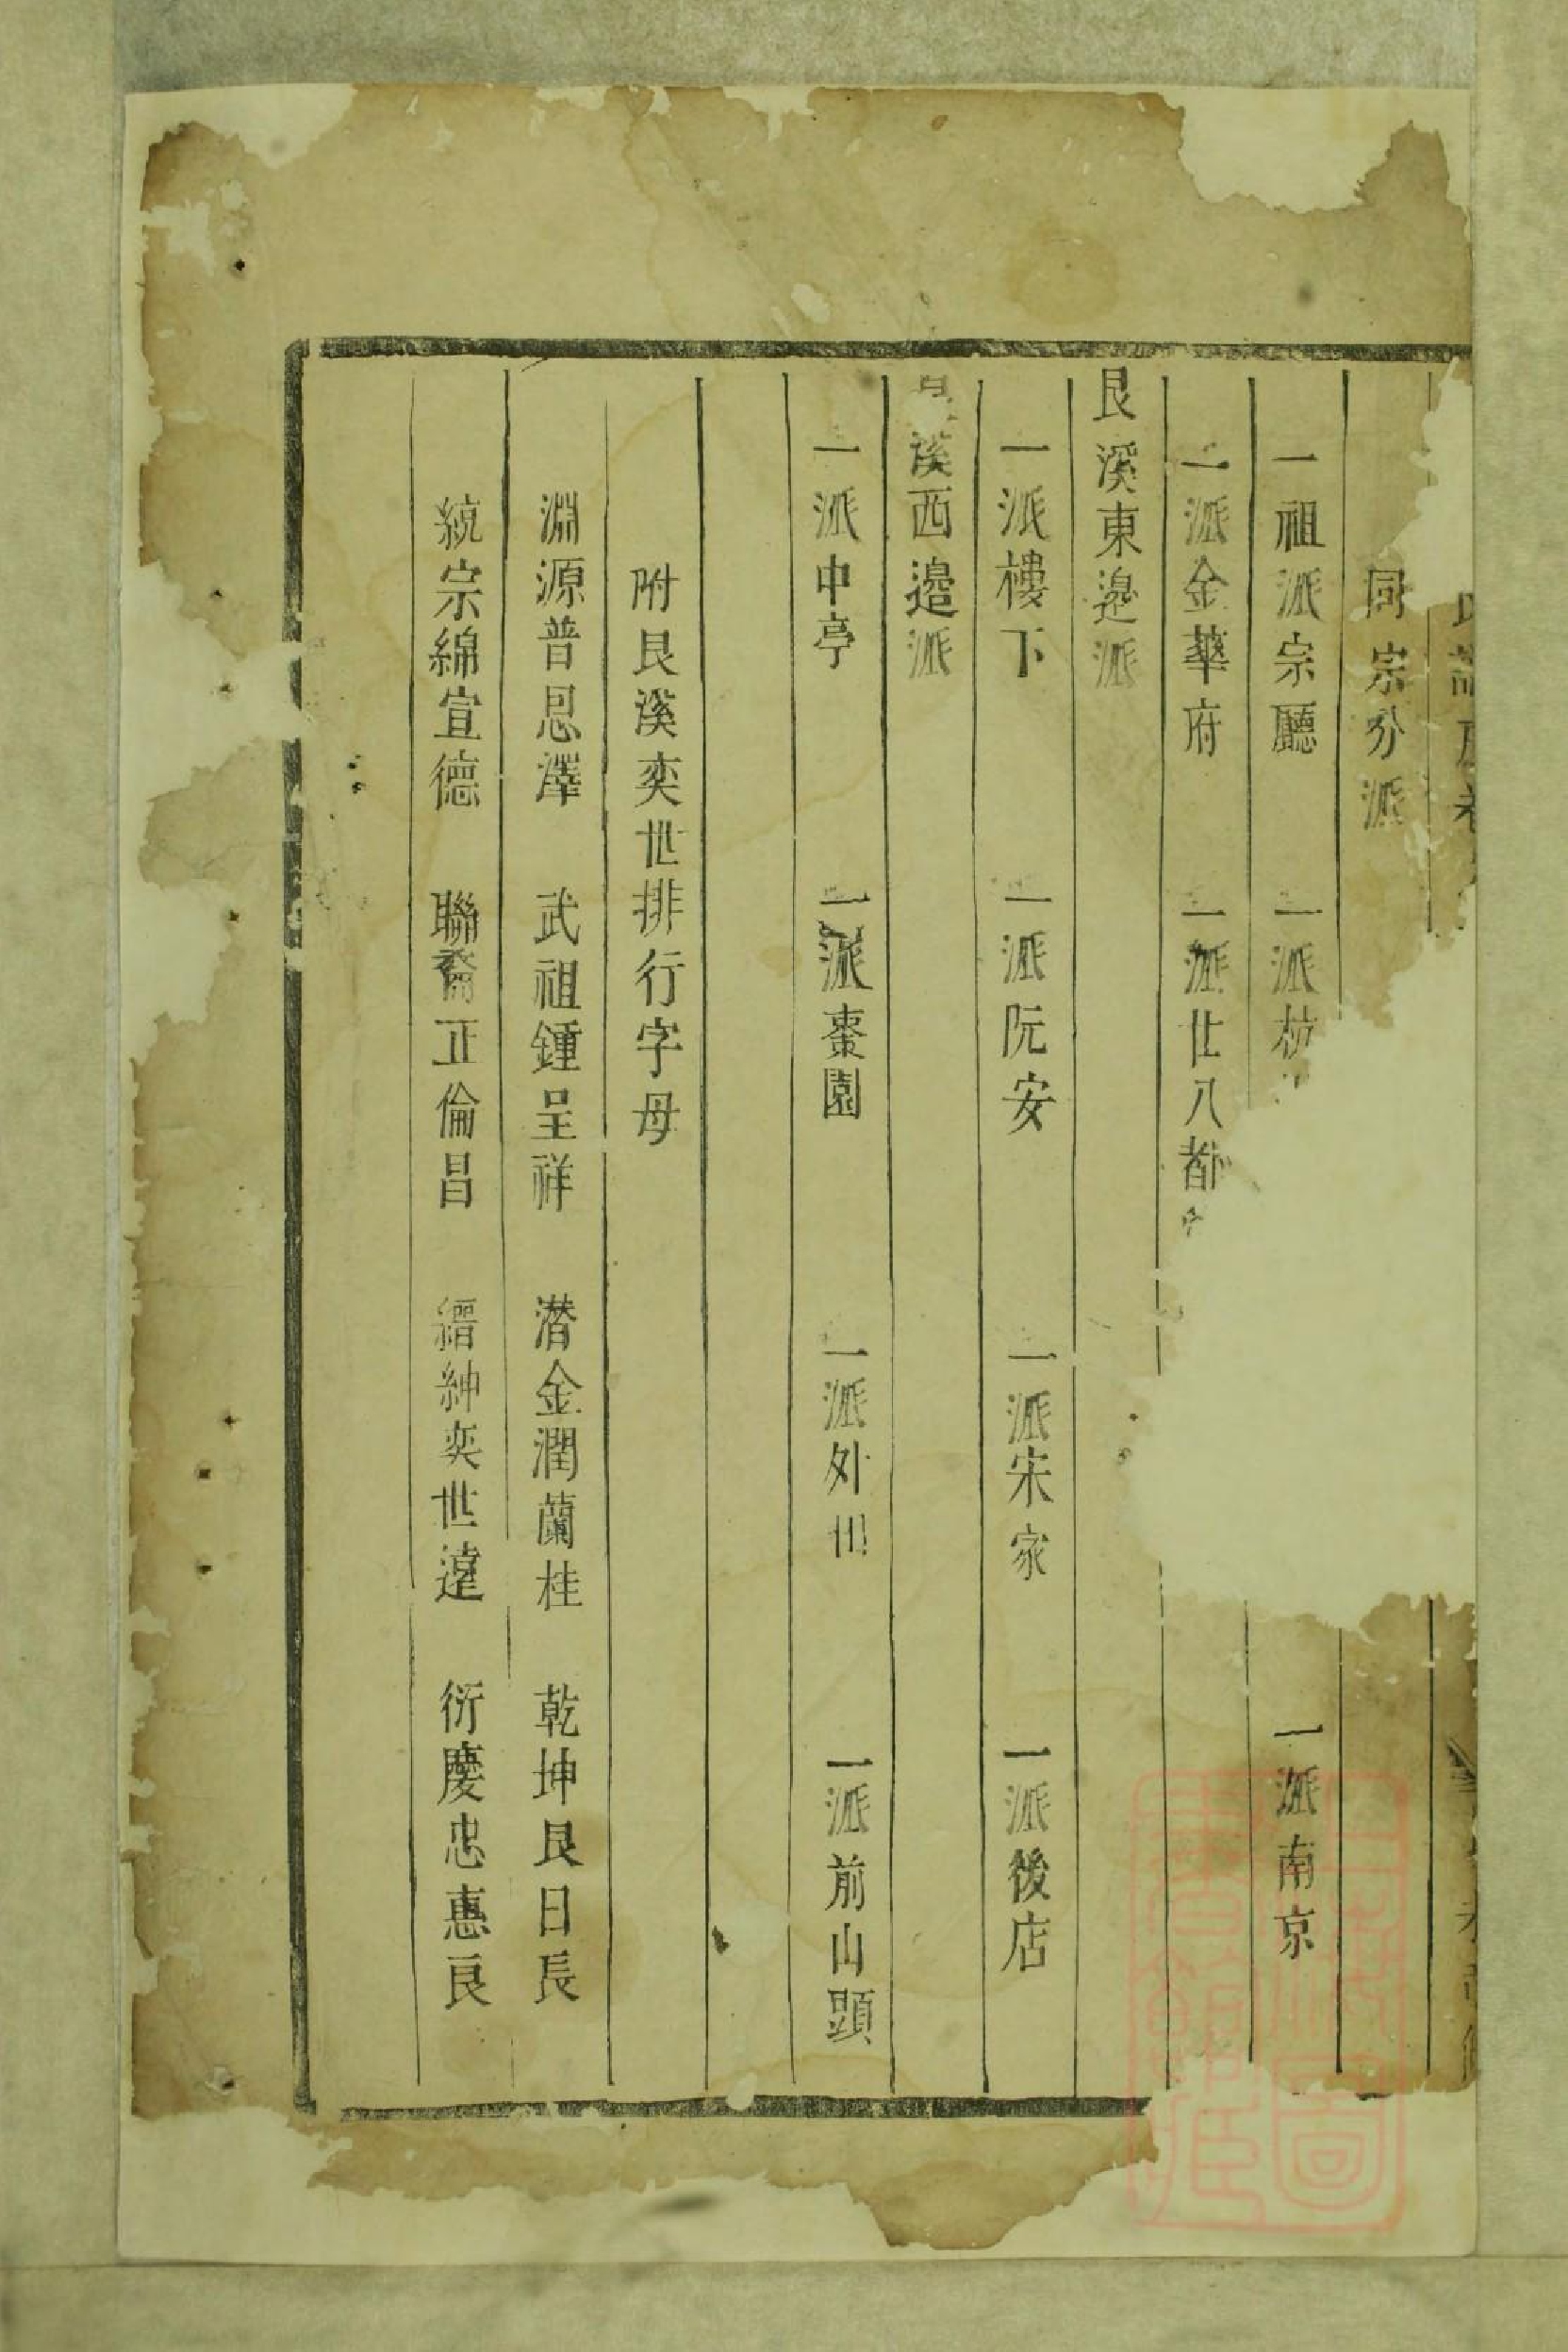 同宗分派
一祖派宗廳　一派杭　一派南京
一派金華府　一派廿八都
艮溪東邊派
一派樓下　一派阮安　一派宋家　一派後店
溪西邉派
一派中亭　一派棗園　一派外田　一派前山頭
附艮溪奕世排行字母
淵源普恩澤　武祖鍾呈祥　潛金潤蘭桂　乾坤艮日長
統宗綿宣德　聯裔正倫昌　縉紳奕世遠　衍慶忠惠良